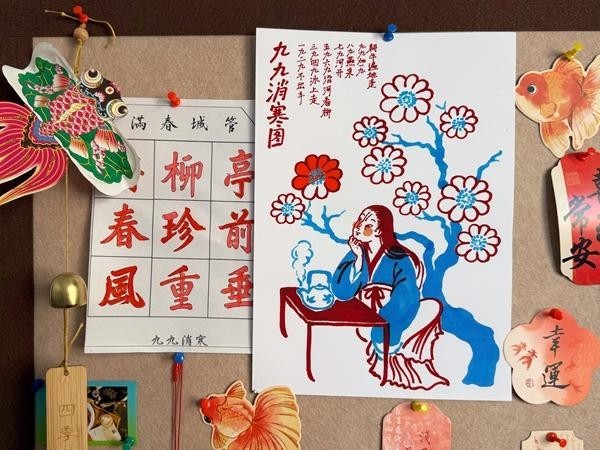 管城春滿
亭前垂
柳珍重
春風
九九消寒
九九消寒图
一九二九不出手
三九四九冰上走
五九六九沿河看柳
七九河开
八九燕来
九九加九
耕牛遍地走
四季
常安
幸運